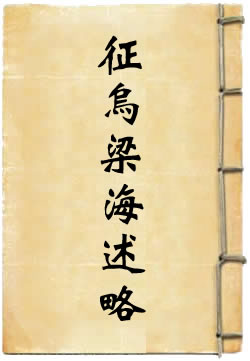 征烏梁海述略